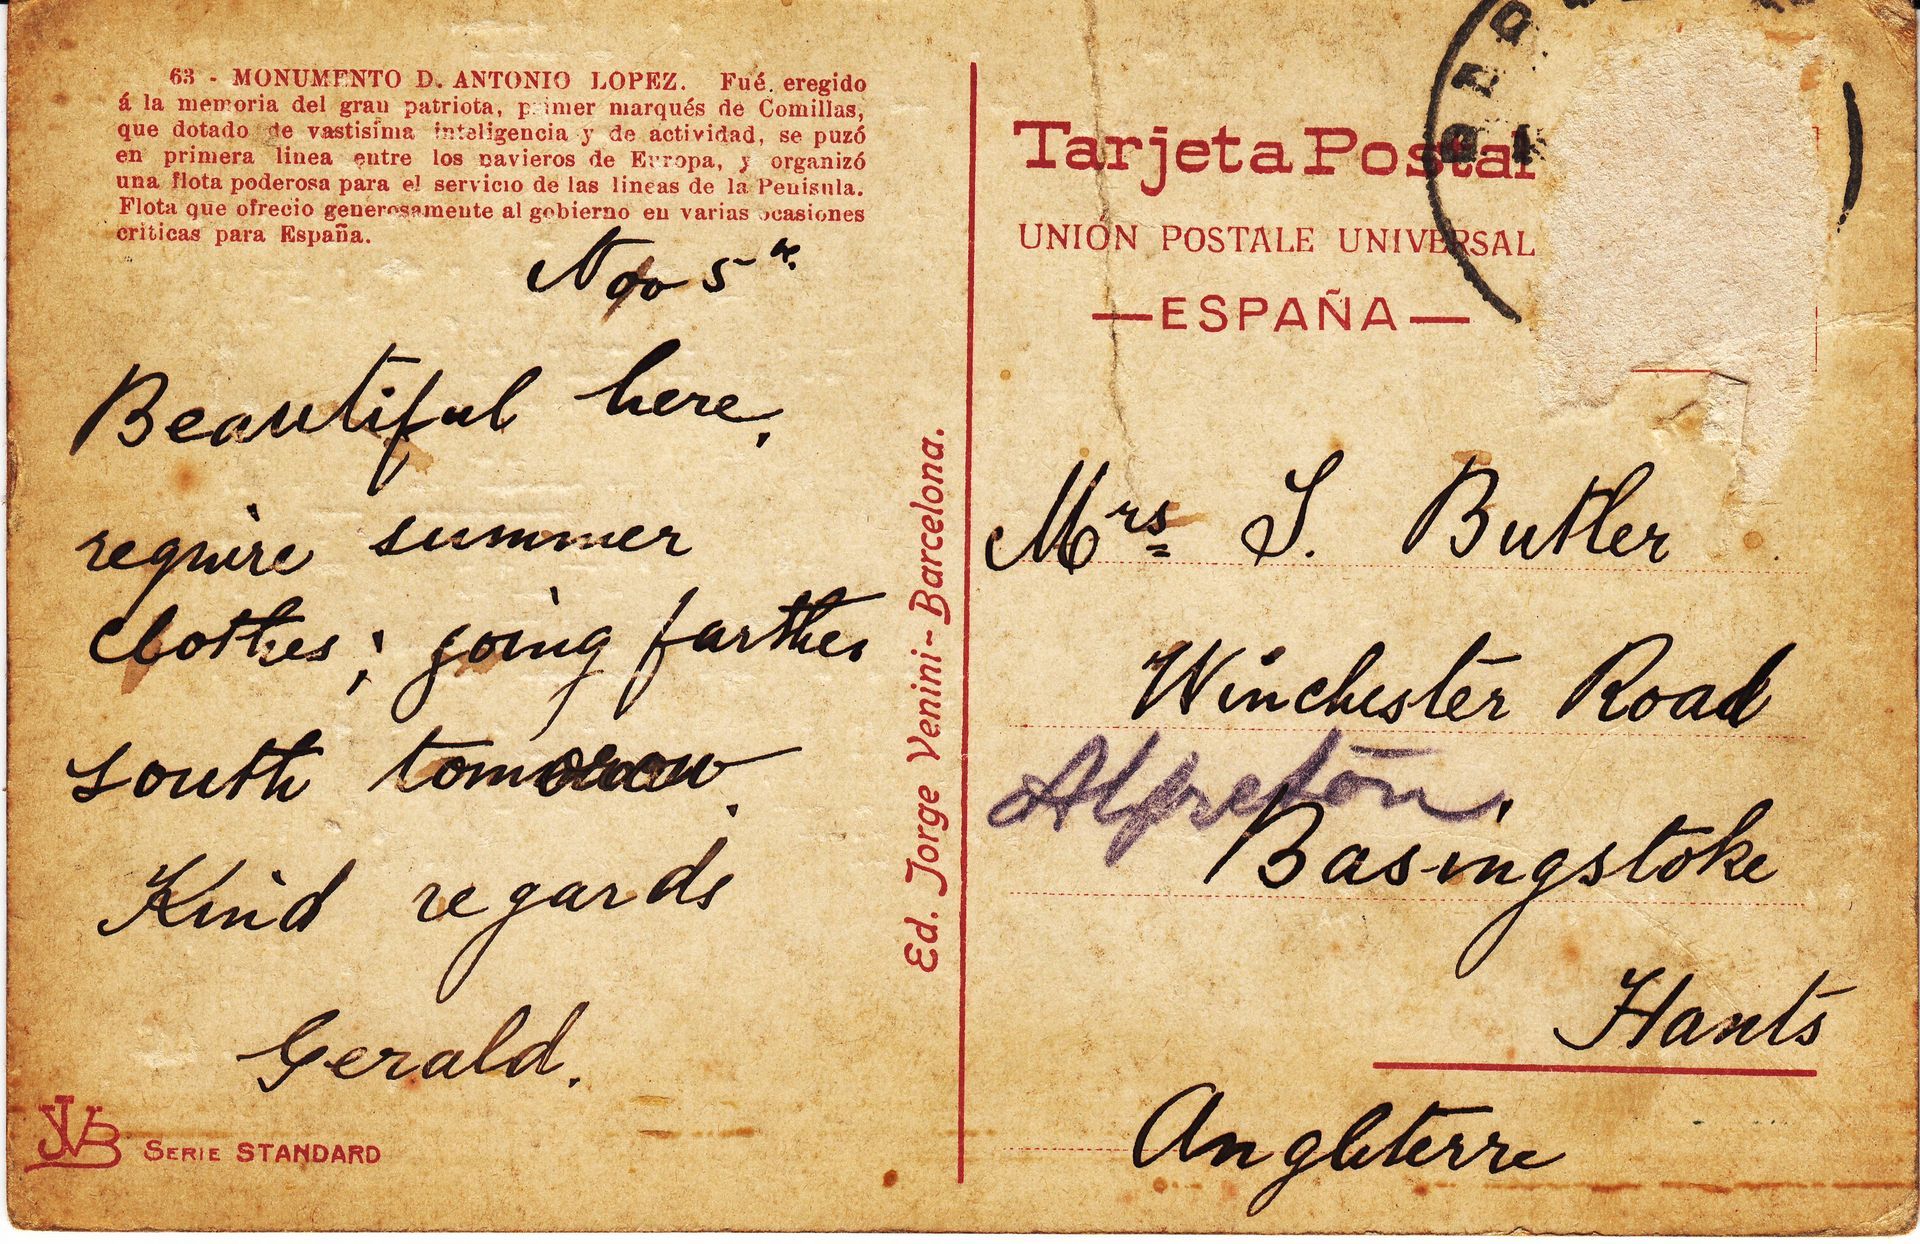 63 - MONUMENTO D. ANTONIO LOPEZ. Fué eregido
á la memoria del gran patriota, primer marqués de Comillas,
que dotado de vastisima inteligencia y de actividad, se puzó
en primera linea entre los navieros de Europa, y organizó
una flota poderosa para el servicio de las lineas de la Peninsula.
Flota que ofrecio generosamente al gobierno en varias ocasiones
criticas para España.
Nov 5th
Beautiful here,
require summer
clothes; going farther
south tomorrow.
Kind regards
Gerald.
JVB SERIE STANDARD
Ed. Jorge Venini - Barcelona.
Tarjeta Postal
UNIÓN POSTALE UNIVERSAL
—ESPAÑA—
Mrs S. Butler
Winchester Road
Alfreton
Basingstoke
Hants
Angleterre